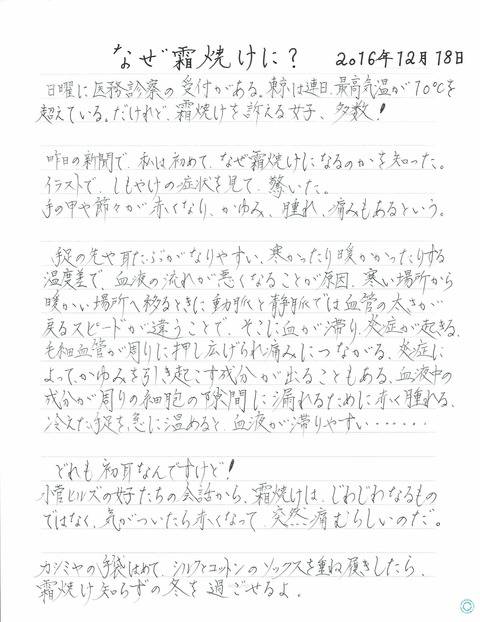 なぜ霜焼けに? 2016年12月18日
日曜に医務診察の受付がある。東京は連日、最高気温が10℃を
超えている。だけれど、霜焼けを訴える女子、多数!
昨日の新聞で、私は初めて、なぜ霜焼けになるのかを知った。
イラストで、しもやけの症状を見て、驚いた。
手の甲や節々が赤くなり、かゆみ、腫れ、痛みもあるという。
手足の先や耳たぶがなりやすい、寒かったり暖かかったりする
温度差で、血液の流れが悪くなることが原因、寒い場所から
暖かい場所へ移るときに動脈と静脈では血管の太さが
戻るスピードが違うことで、そこに血が滞り、炎症が起きる、
毛細血管が周りに押し広げられ痛みにつながる、炎症に
よって、かゆみを引き起こす成分が出ることもある、血液中の
成分が周りの細胞の隙間に漏れるために赤く腫れる、
冷えた手足を急に温めると、血液が滞りやすい・・・・・・
どれも初耳なんですけど!
小菅ヒルズの女子たちの会話から、霜焼けは、じわじわなるもの
ではなく、気がついたら赤くなって、突然痛むらしいのだ。
カシミヤの手袋はめて、シルクとコットンのソックスを重ね履きしたら、
霜焼け知らずの冬を過ごせるよ。
©